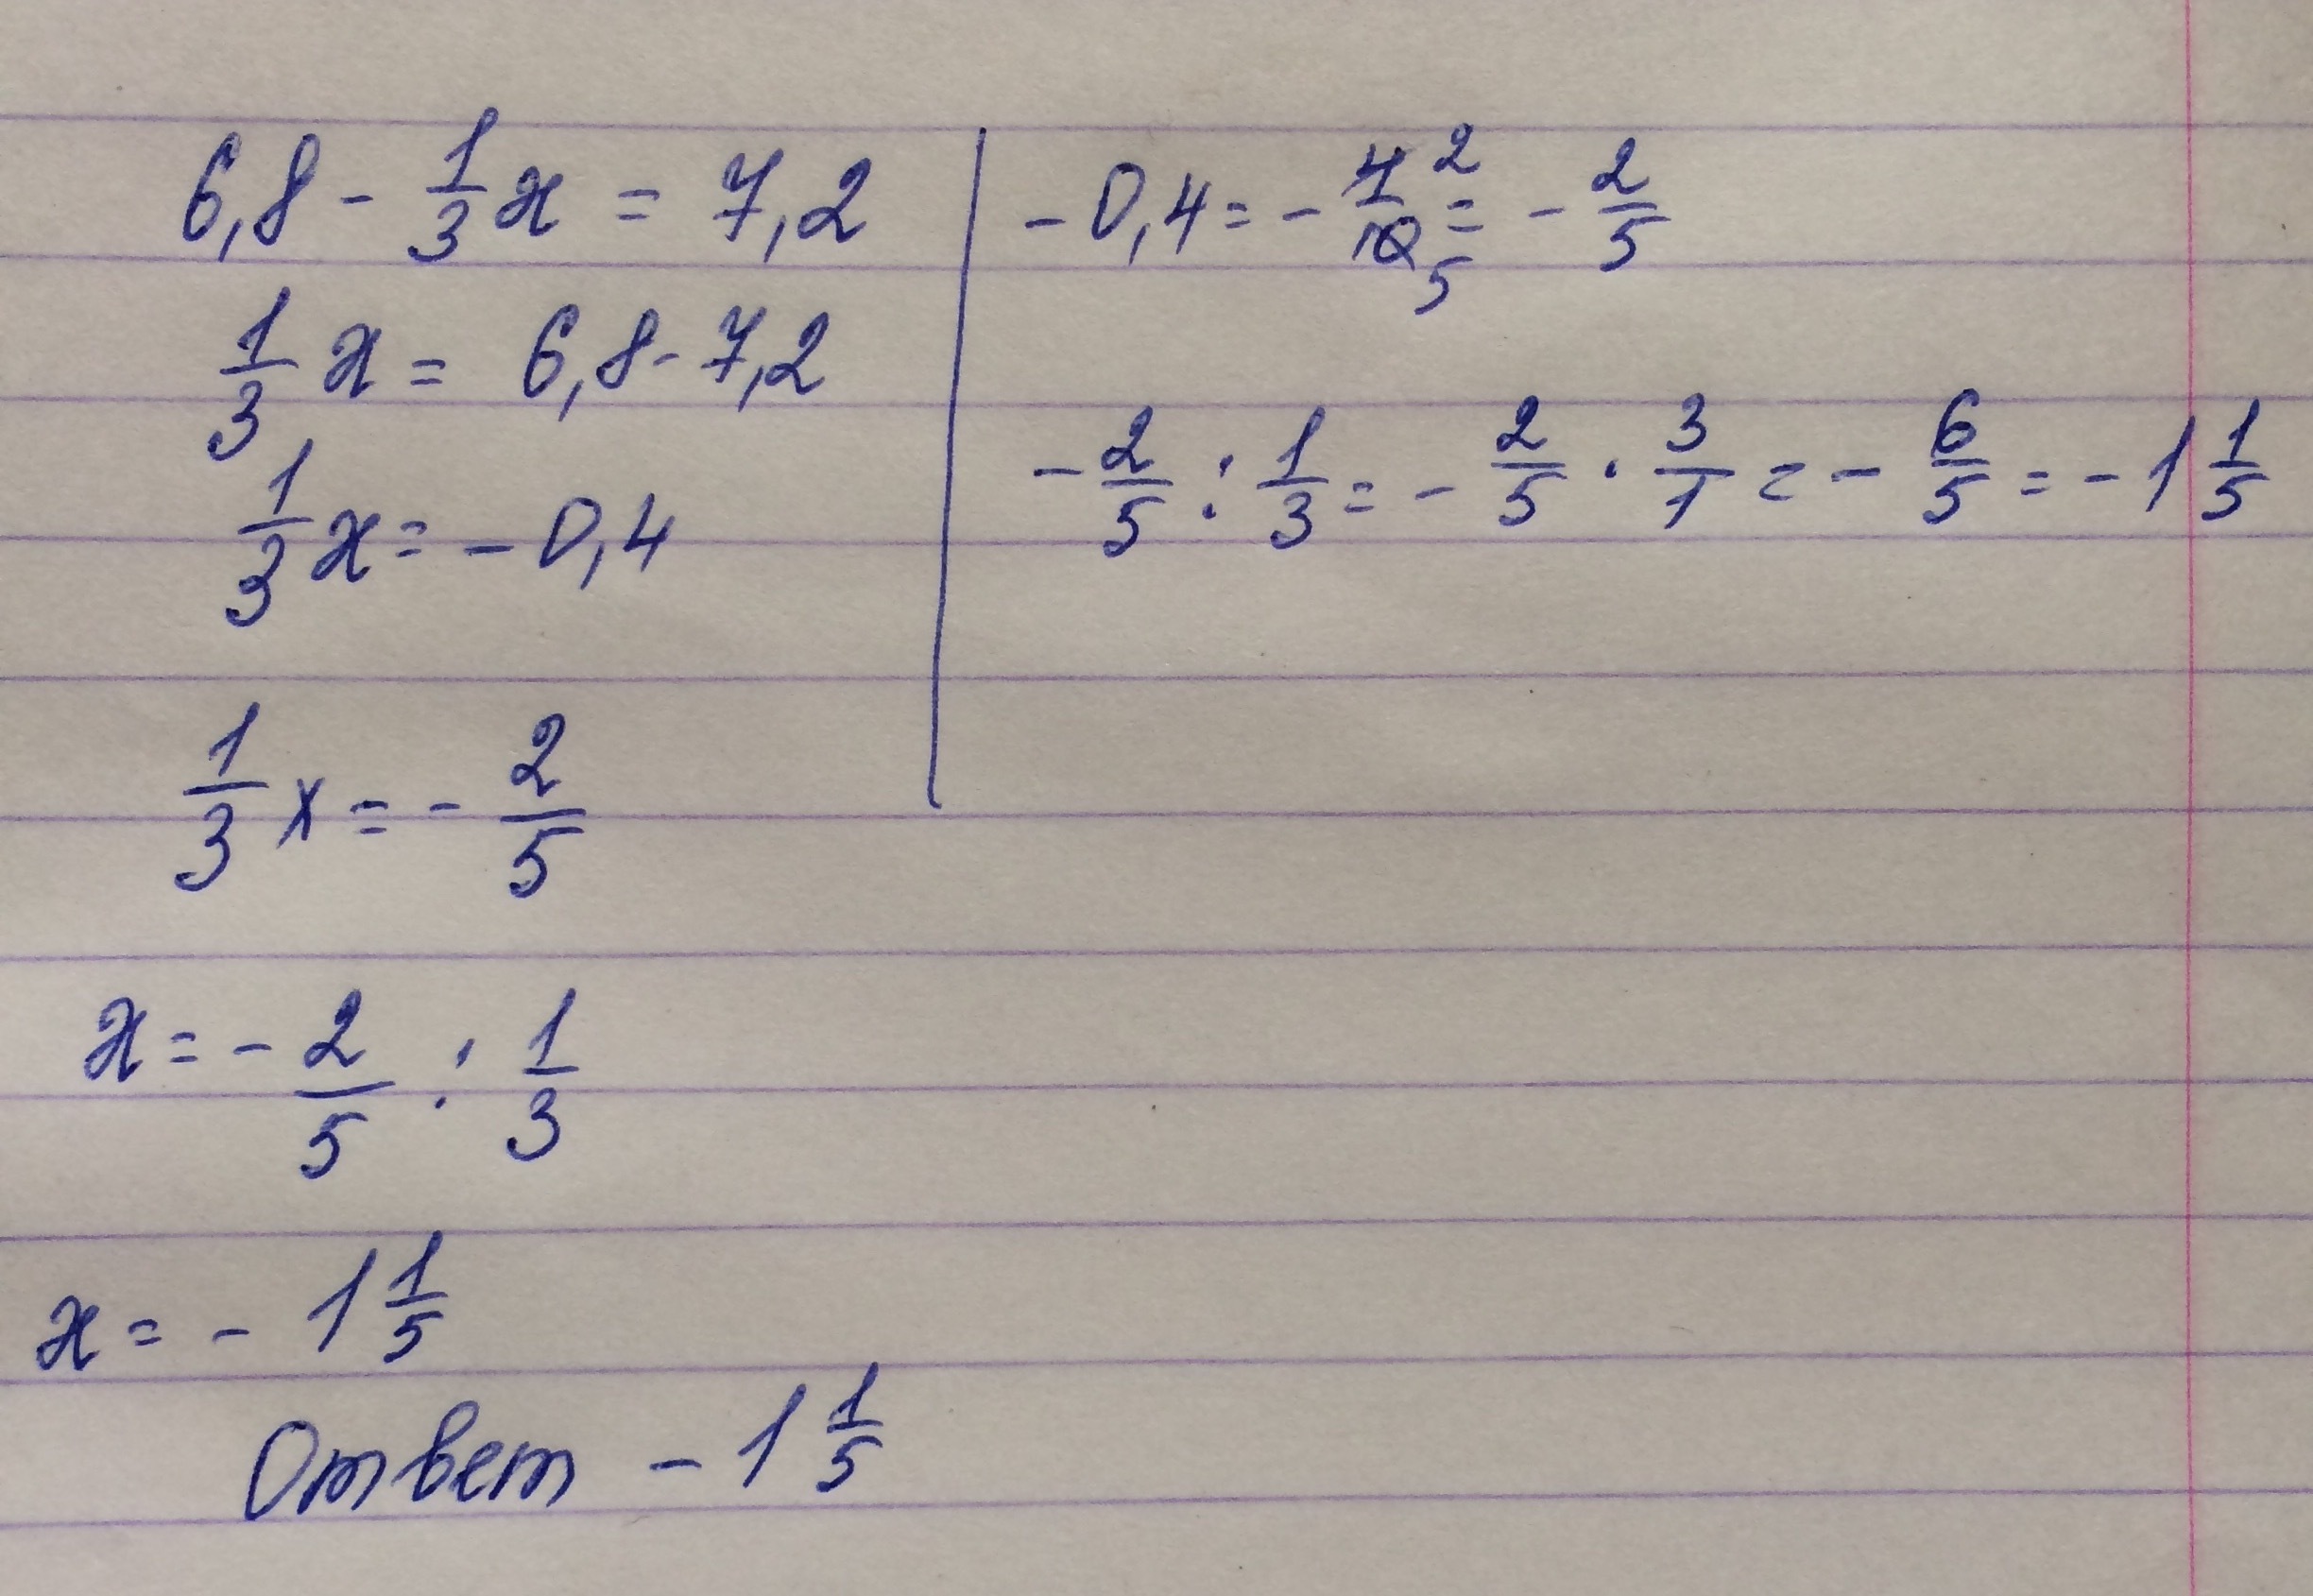 6,8 - 1/3 x = 7,2
1/3 x = 6,8 - 7,2
1/3 x = - 0,4
1/3 x = - 2/5
x = - 2/5 : 1/3
x = - 1 1/5
Ответ - 1 1/5
- 0,4 = - 4/10 2 5 = - 2/5
- 2/5 : 1/3 = - 2/5 · 3/1 = - 6/5 = - 1 1/5